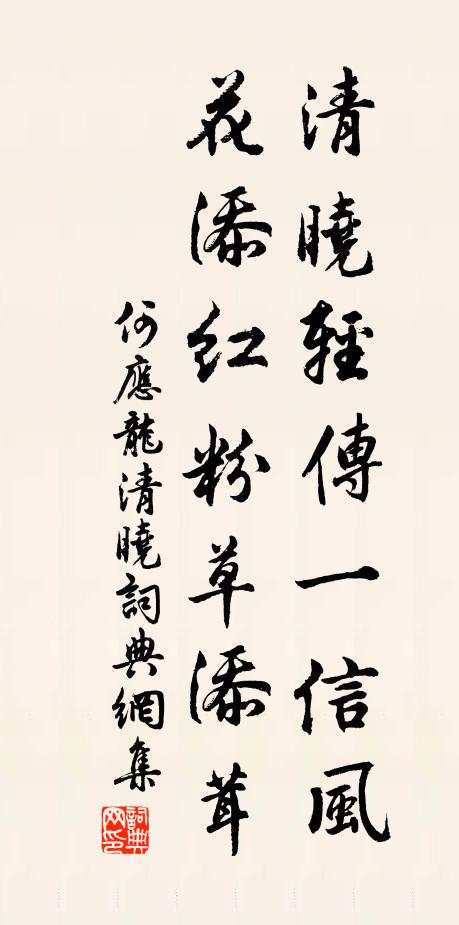 清曉輕傳一信風
花添紅粉草添茸
何應龍清曉詞典網集
詞典網印